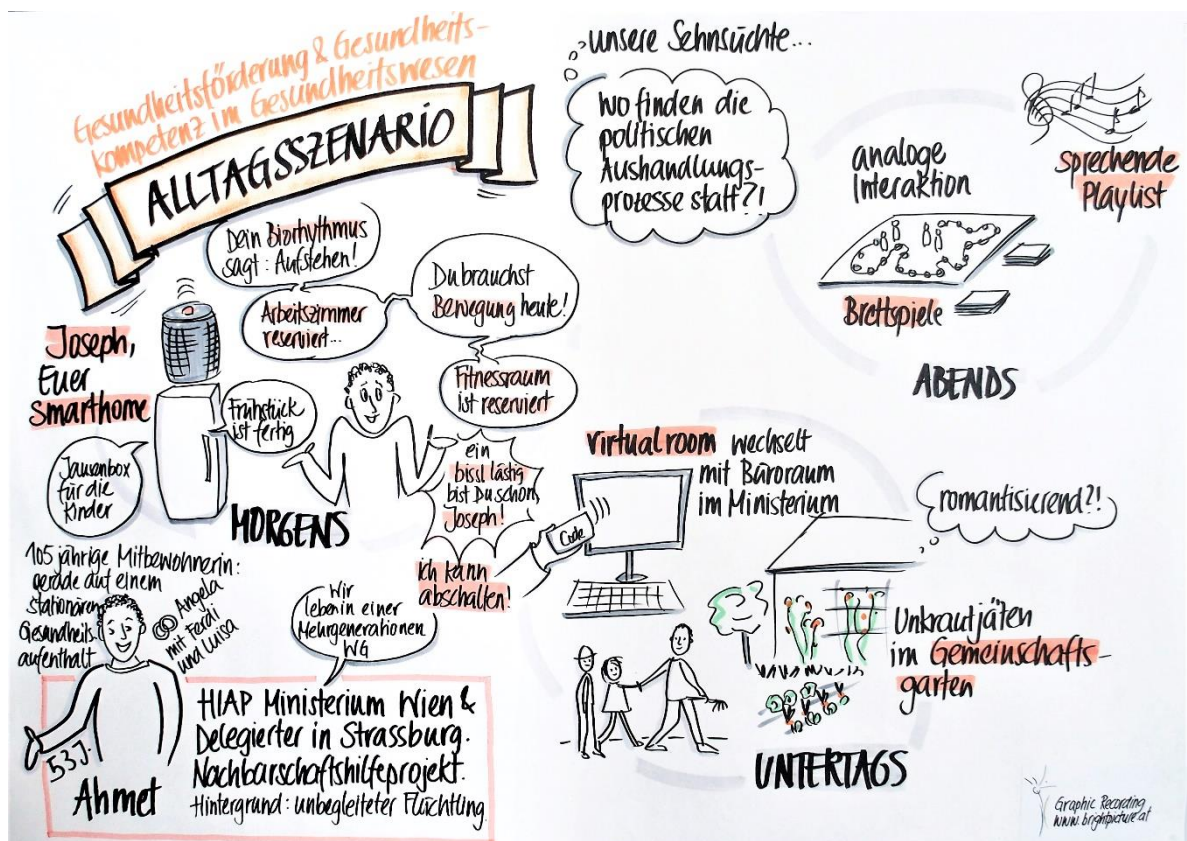 Gesundheitsförderung & Gesundheits-
kompetenz im Gesundheitswesen
ALLTAGSSZENARIO
Dein Biorhythmus
sagt: Aufstehen!
Arbeitszimmer
reserviert...
Du brauchst
Bewegung heute!
Fitnessraum
ist reserviert
Joseph,
Euer
Smarthome
Frühstück
ist fertig
Jausenbox
für die
Kinder
ein
bissl lästig
bist Du schon,
Joseph!
ich kann
abschalten!
MORGENS
105 jährige Mitbewohnerin:
gerade auf einem
stationären
Gesundheits-
aufenthalt
Angela
mit Ferdi
und Luisa
Wir
leben in einer
Mehrgenerationen
WG
53 J.
Ahmet
HIAP Ministerium Wien &
Delegierter in Strassburg.
Nachbarschaftshilfeprojekt.
Hintergrund: unbegleiteter Flüchtling
unsere Sehnsüchte...
Wo finden die
politischen
Aushandlungs-
prozesse statt?!
analoge
Interaktion
sprechende
Playlist
Brettspiele
ABENDS
virtual room wechselt
mit Büroraum
im Ministerium
Code
romantisierend?!
Unkrautjäten
im Gemeinschafts-
garten
UNTERTAGS
Graphic Recording
www.brightpicture.at